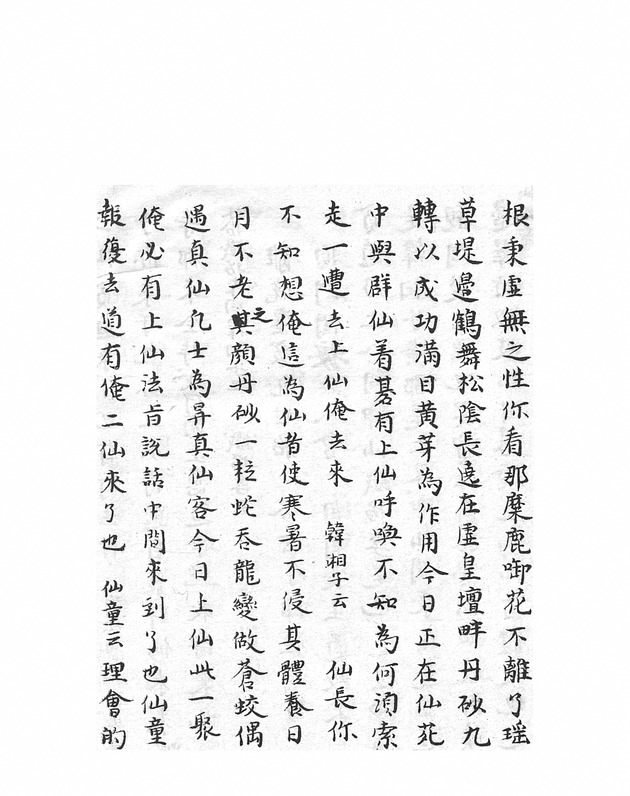 根秉虛無之性你看那麋鹿啣花不離了瑶
草堤邊鶴舞松陰長遶在虛皇壇畔丹砂九
轉以成功滿目黄芽為作用今日正在仙苑
中與群仙着碁有上仙呼喚不知為何湏索
走一遭去上仙俺去來 韓湘子云 仙長你
不知想俺這為仙者使寒暑不侵其體養日
月不老之顔丹砂一粒蛇吞龍變做蒼蛟偶
遇真仙凢士為昇真仙客今日上仙此一聚
俺必有上仙法旨説話中間來到了也仙童
報復去道有俺二仙來了也 仙童云理會的